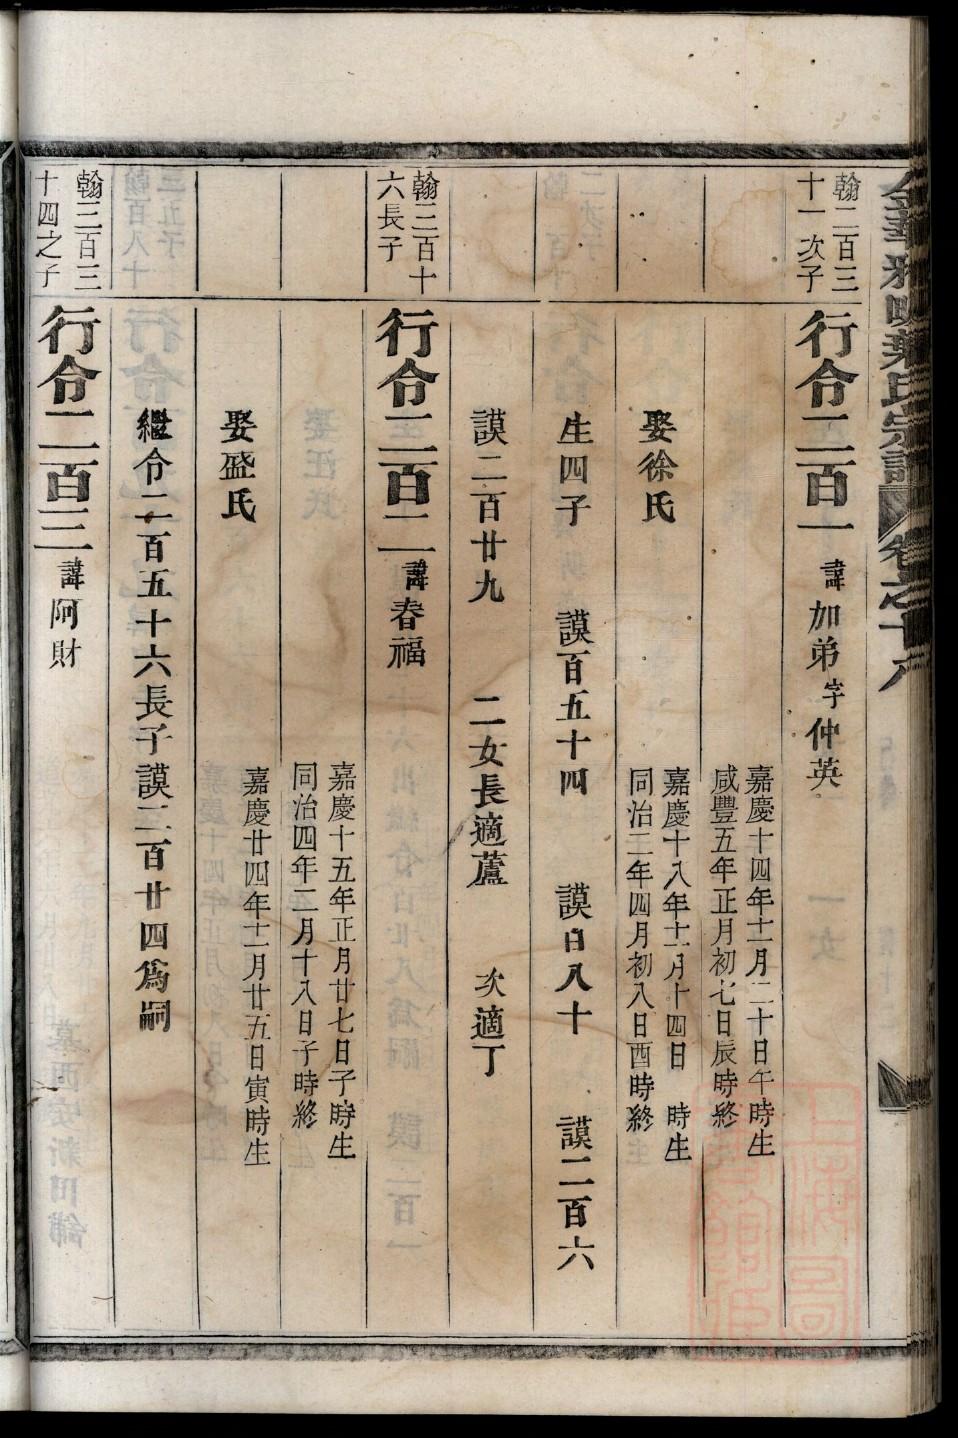 金華雅畈葉氏宗譜 卷之十八
翰二百三
十一次子
行令二百一 諱加弟字仲英
嘉慶十四年十二月二十日午時生
咸豐五年正月初七日辰時終
娶徐氏
嘉慶十八年十二月十四日 時生
同治二年四月初八日酉時終
生四子 謨百五十四 謨百八十 謨二百六
謨二百廿九 二女長適蘆 次適丁
翰三百十
六長子
行令二百二 諱春福
嘉慶十五年正月廿七日子時生
同治四年二月十八日子時終
娶盛氏
嘉慶廿四年十二月廿五日寅時生
繼令二百五十六長子謨二百廿四爲嗣
翰三百三
十四之子
行令二百三 諱阿財